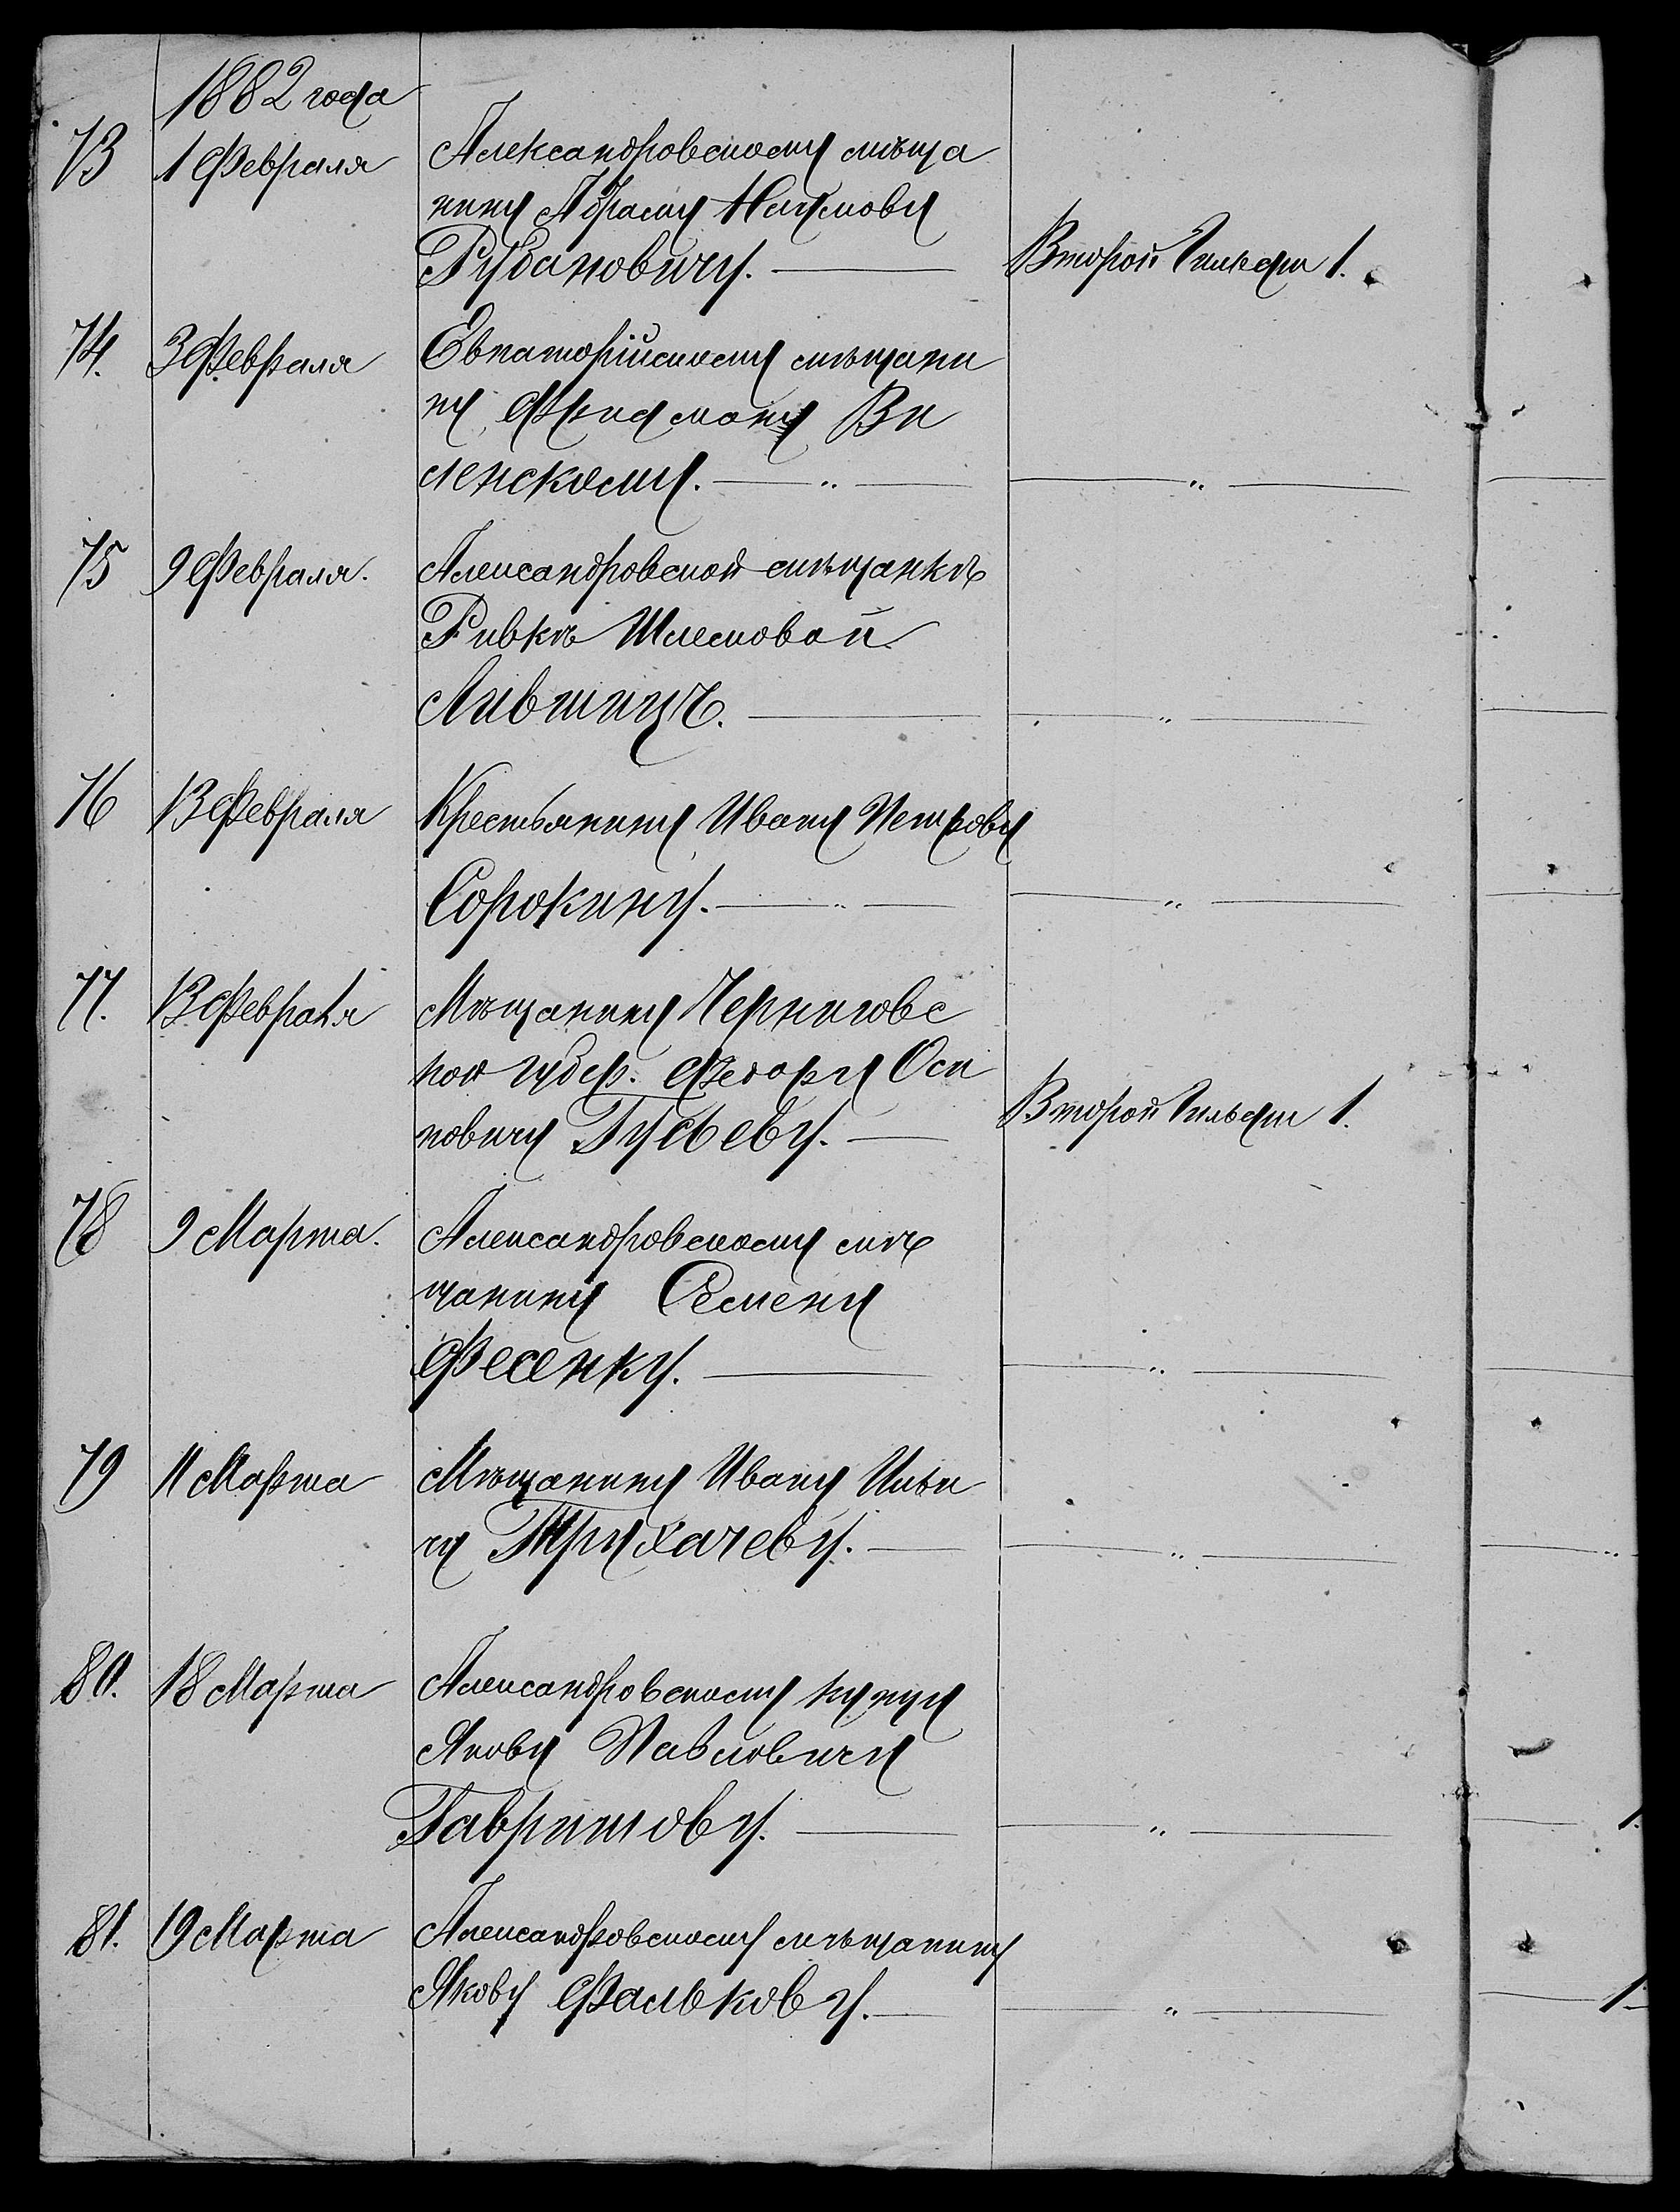 1882 года
73 1 Февраля Александровскому мѣща
нину Абраму Наумову
Рубановичу. Второй Гильдіи 1.
74. 3 Февраля Евпаторійскому мѣщани
ну Фридману Ви
ленскому. — „ — — „ —
75 9 Февраля. Александровской мѣщанкѣ
Ривкѣ Шлемовой
Лившицъ. — — „ —
76 13 Февраля Крестьянину Ивану Петрову
Сорокину. — „ — — „ —
77. 13 Февраля Мѣщанину Черниговс
кой губер. Федору Оси
повичу Гусьеву. — Второй Гильдіи 1.
78 9 Марта. Александровскому мѣ
щанину Семену
Фесенку. — — „ —
79 11 Марта Мѣщанину Ивану Ильи
чу Трухачеву. — — „ — — „
80. 18 Марта Александровскому купцу
Якову Павловичу
Гавришову. — — „ — — 1.
81. 19 Марта Александровскому мѣщанину
Якову Фалькову. — — „ — — 1